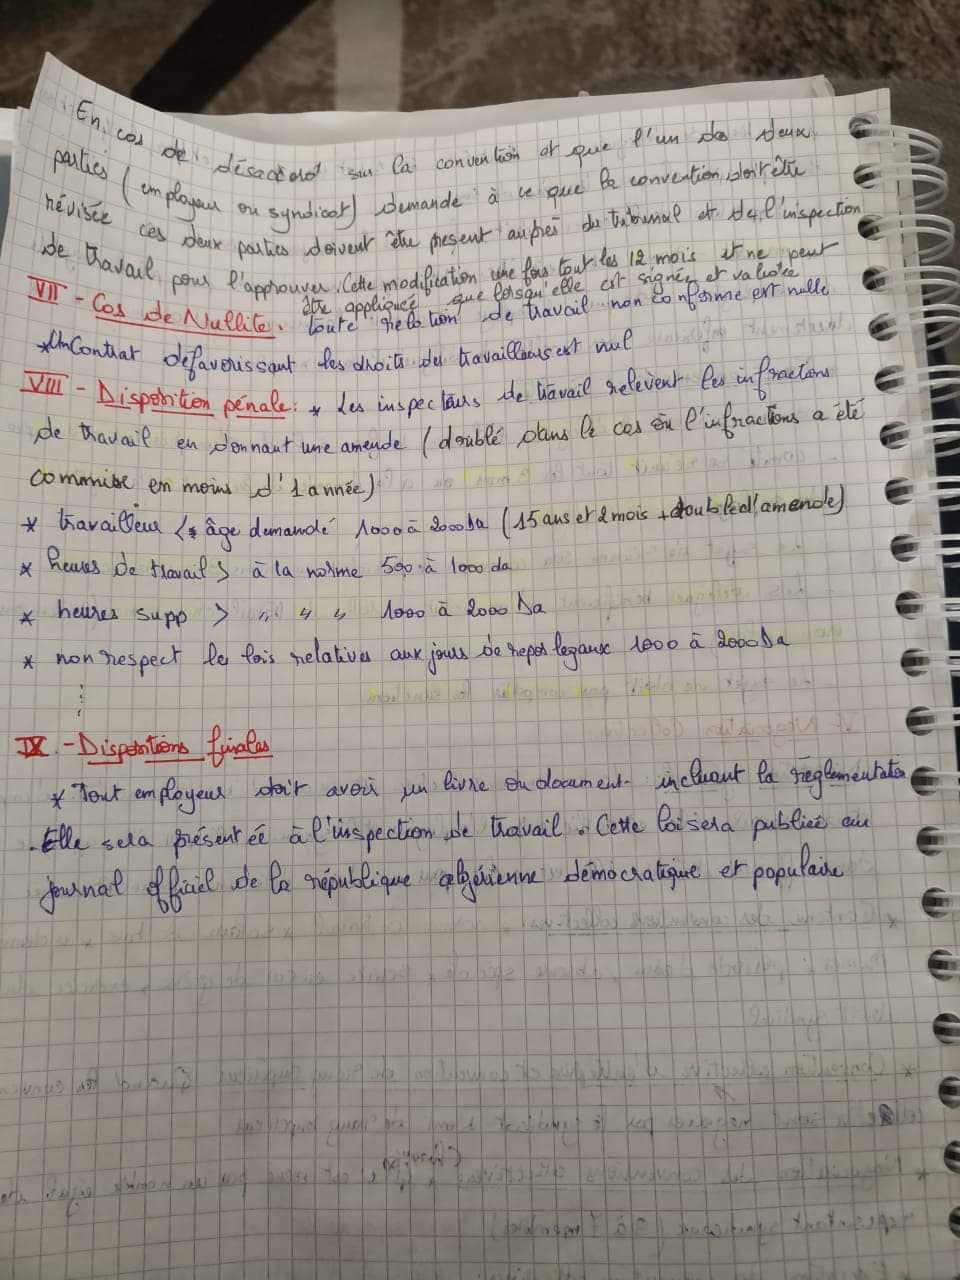 En cas de désaccord sur la convention et que l'un des deux
parties (employeur ou syndicat) demande à ce que la convention doit être
révisée ces deux parties doivent être présent auprès du tribunal et de l'inspection
de travail pour l'approuver. Cette modification une fois tout les 12 mois et ne peut
être appliquée que lorsqu'elle est signée et validée
VII - Cas de Nullité. toute relation de travail non conforme est nulle
* Un Contrat défavorissant les droits des travailleurs est nul
VIII - Disposition pénale: * Les inspecteurs de travail relèvent les infractions
de travail en donnant une amende (doublé dans le cas où l'infractions a été
commise en moins d'1 année)
* travailleur < âge demandé 1000 à 2000 Da (15 ans et 2 mois + double d'amende)
* heures de travail > à la norme 500 à 1000 da
* heures supp > " " " 1000 à 2000 Da
* non respect les lois relatives aux jours de repos légaux 1000 à 2000 Da
IX - Dispositions finales
* Tout employeur doit avoir un livre ou document incluant la réglementation
. Elle sera présentée à l'inspection de travail. Cette loi sera publiée au
journal officiel de la république algérienne démocratique et populaire